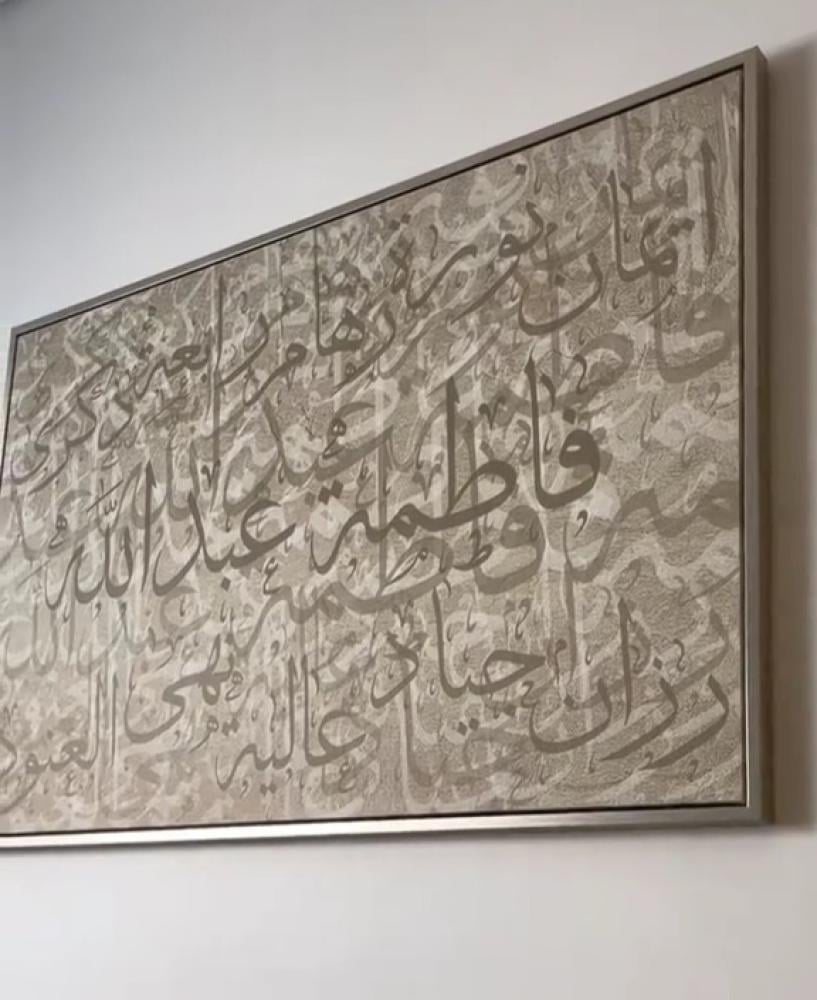 ايمان نورة رهام مرر رابعة ذكرى
فاطمة عبدالله
رزان اجياد عالية نهى العنود